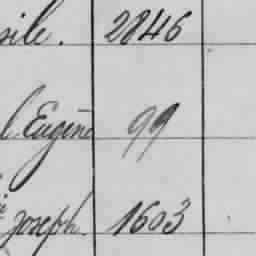 2846
l. Eugène 99
Joseph. 1603